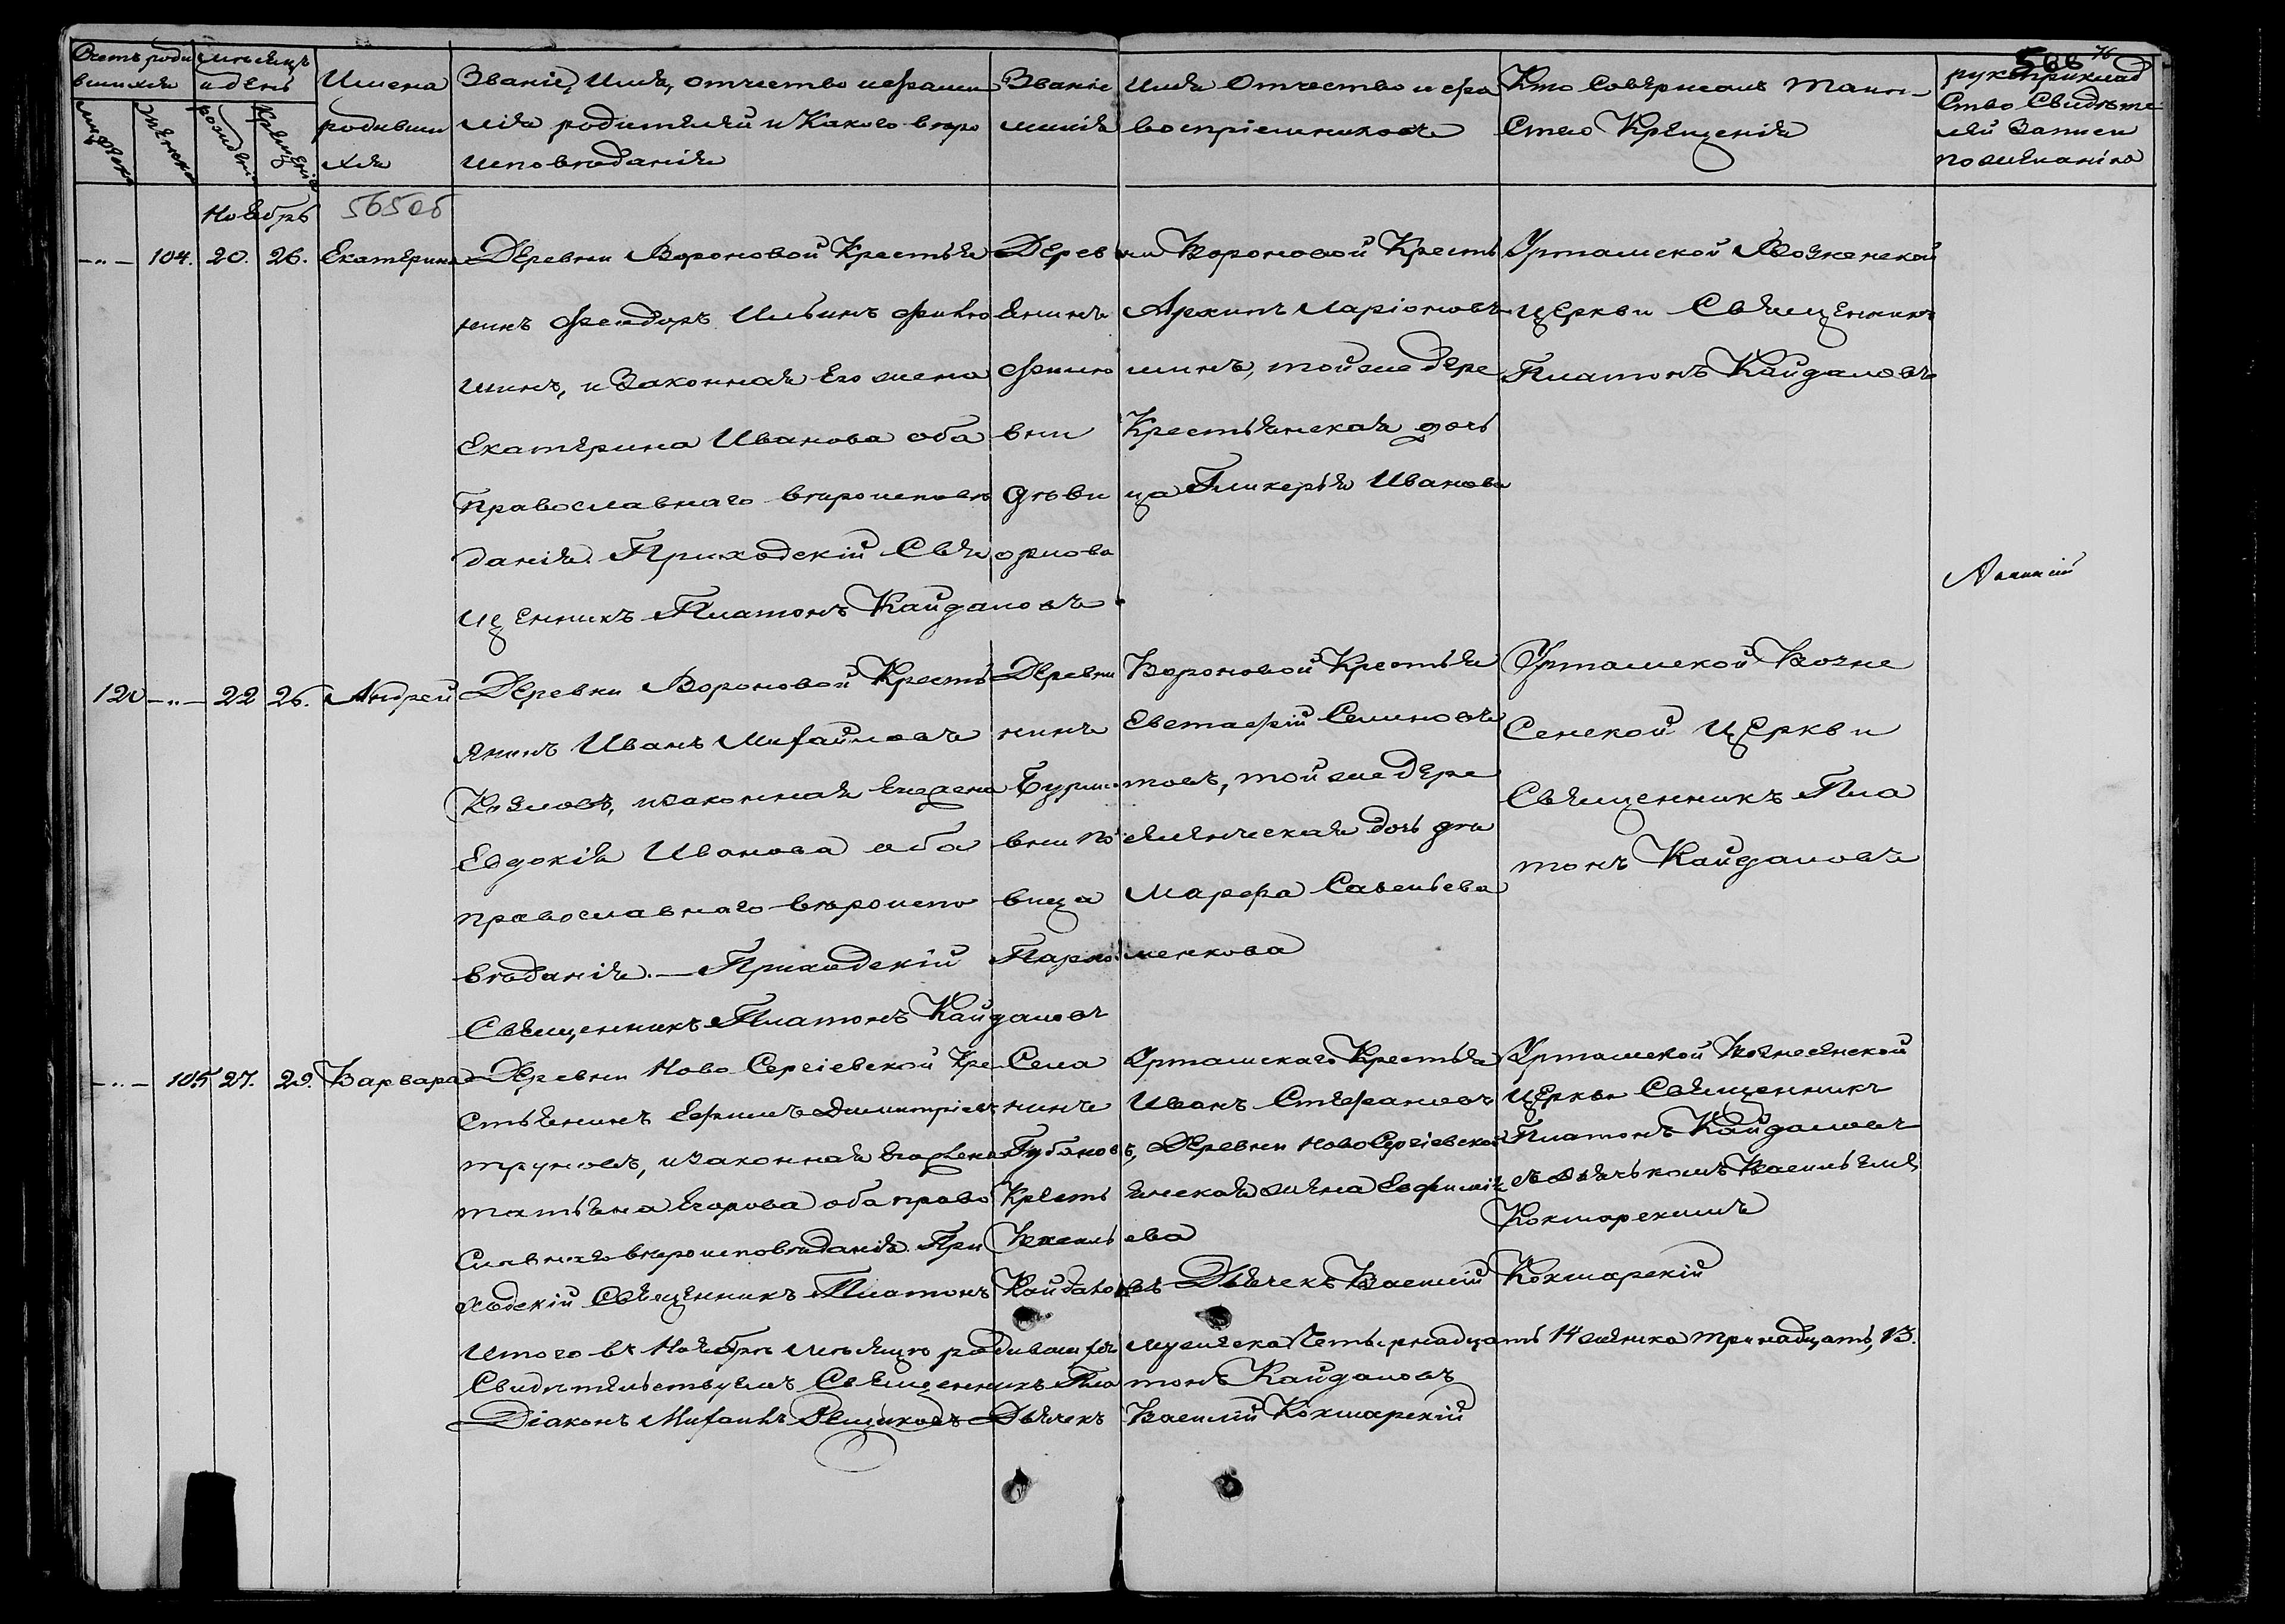 566 76
Счетъ роди
вшихся
мѣсяцъ
и день
мужеска
женска
рожденія
крещенія
Имена
родивши
хся
Званіе, Имя, отчество и фами
лія родителей и Какого вѣро
исповѣданія
Званіе Имя Отчество и фа
милія воспріемниковъ
Кто Совершалъ Таин-
Ство Крещенія
рукоприклад
Ство Свидѣте
лей Записи
по желанію
Ноябрь
565 об
-„- 104. 20. 26. Екатерина
Деревни Вороновой Крестья
нинъ Феодоръ Ильинъ Филю
шинъ, и Законная Его жена
Екатерина Иванова оба
Православнаго вѣроисповѣ
данія. Приходскій Свя
щенникъ Платонъ Кайдаловъ
Деревни Вороновой Кресть
янинъ Архипъ Ларіоновъ
Филю шинъ, той же дере
вни Крестьянская дочь
дѣви ца Гликерья Иванова
орлова
Урташской Вознесенской
Церкви Священникъ
Платонъ Кайдаловъ
120 -„- 22 26. Андрей
Деревни Вороновой Кресть
янинъ Иванъ Михайловъ
Козловъ, и законная Его жена
Евдокія Иванова оба
православнаго вѣроиспо
вѣданія. — Приходскій
Священникъ Платонъ Кайдаловъ
Деревни Вороновой Крестья
нинъ Евстафій Семиновъ
той же дере
вни дочь дѣ
вица Марфа Савельева
Пархоменкова
Урташской Возне
Сенской Церкви
Священникъ Пла
тонъ Кайдаловъ
-„- 105 27. 29. Варвара
Деревни Ново Сергіевской Кре
стьянинъ Ефимъ Димитріевъ
Труновъ, и законная Его жена
татьяна Егорова оба право
Славнаго вѣроисповѣданія. При
ходскій Священникъ Платонъ Кайдаловъ Дьячекъ Василій Кокшарскій
Села Урташскаго Крестья
нинъ Иванъ Стефановъ
Губановъ, Деревни Ново Сергіевской
Кресть янская жена Евфимія
Василь ева
Урташской Вознесенской
Церкви Священникъ
Платонъ Кайдаловъ
съ Дьячькомъ Васильемъ
Кокшарскимъ
Итого въ Ноябрѣ мѣсяцѣ родившихся мужеска Четырнадцать 14 женска тринадцать, 13.
Свидѣтельствуемъ Священникъ Платонъ Кайдаловъ
Діаконъ Михаилъ Дьячекъ Василій Кокшарскій